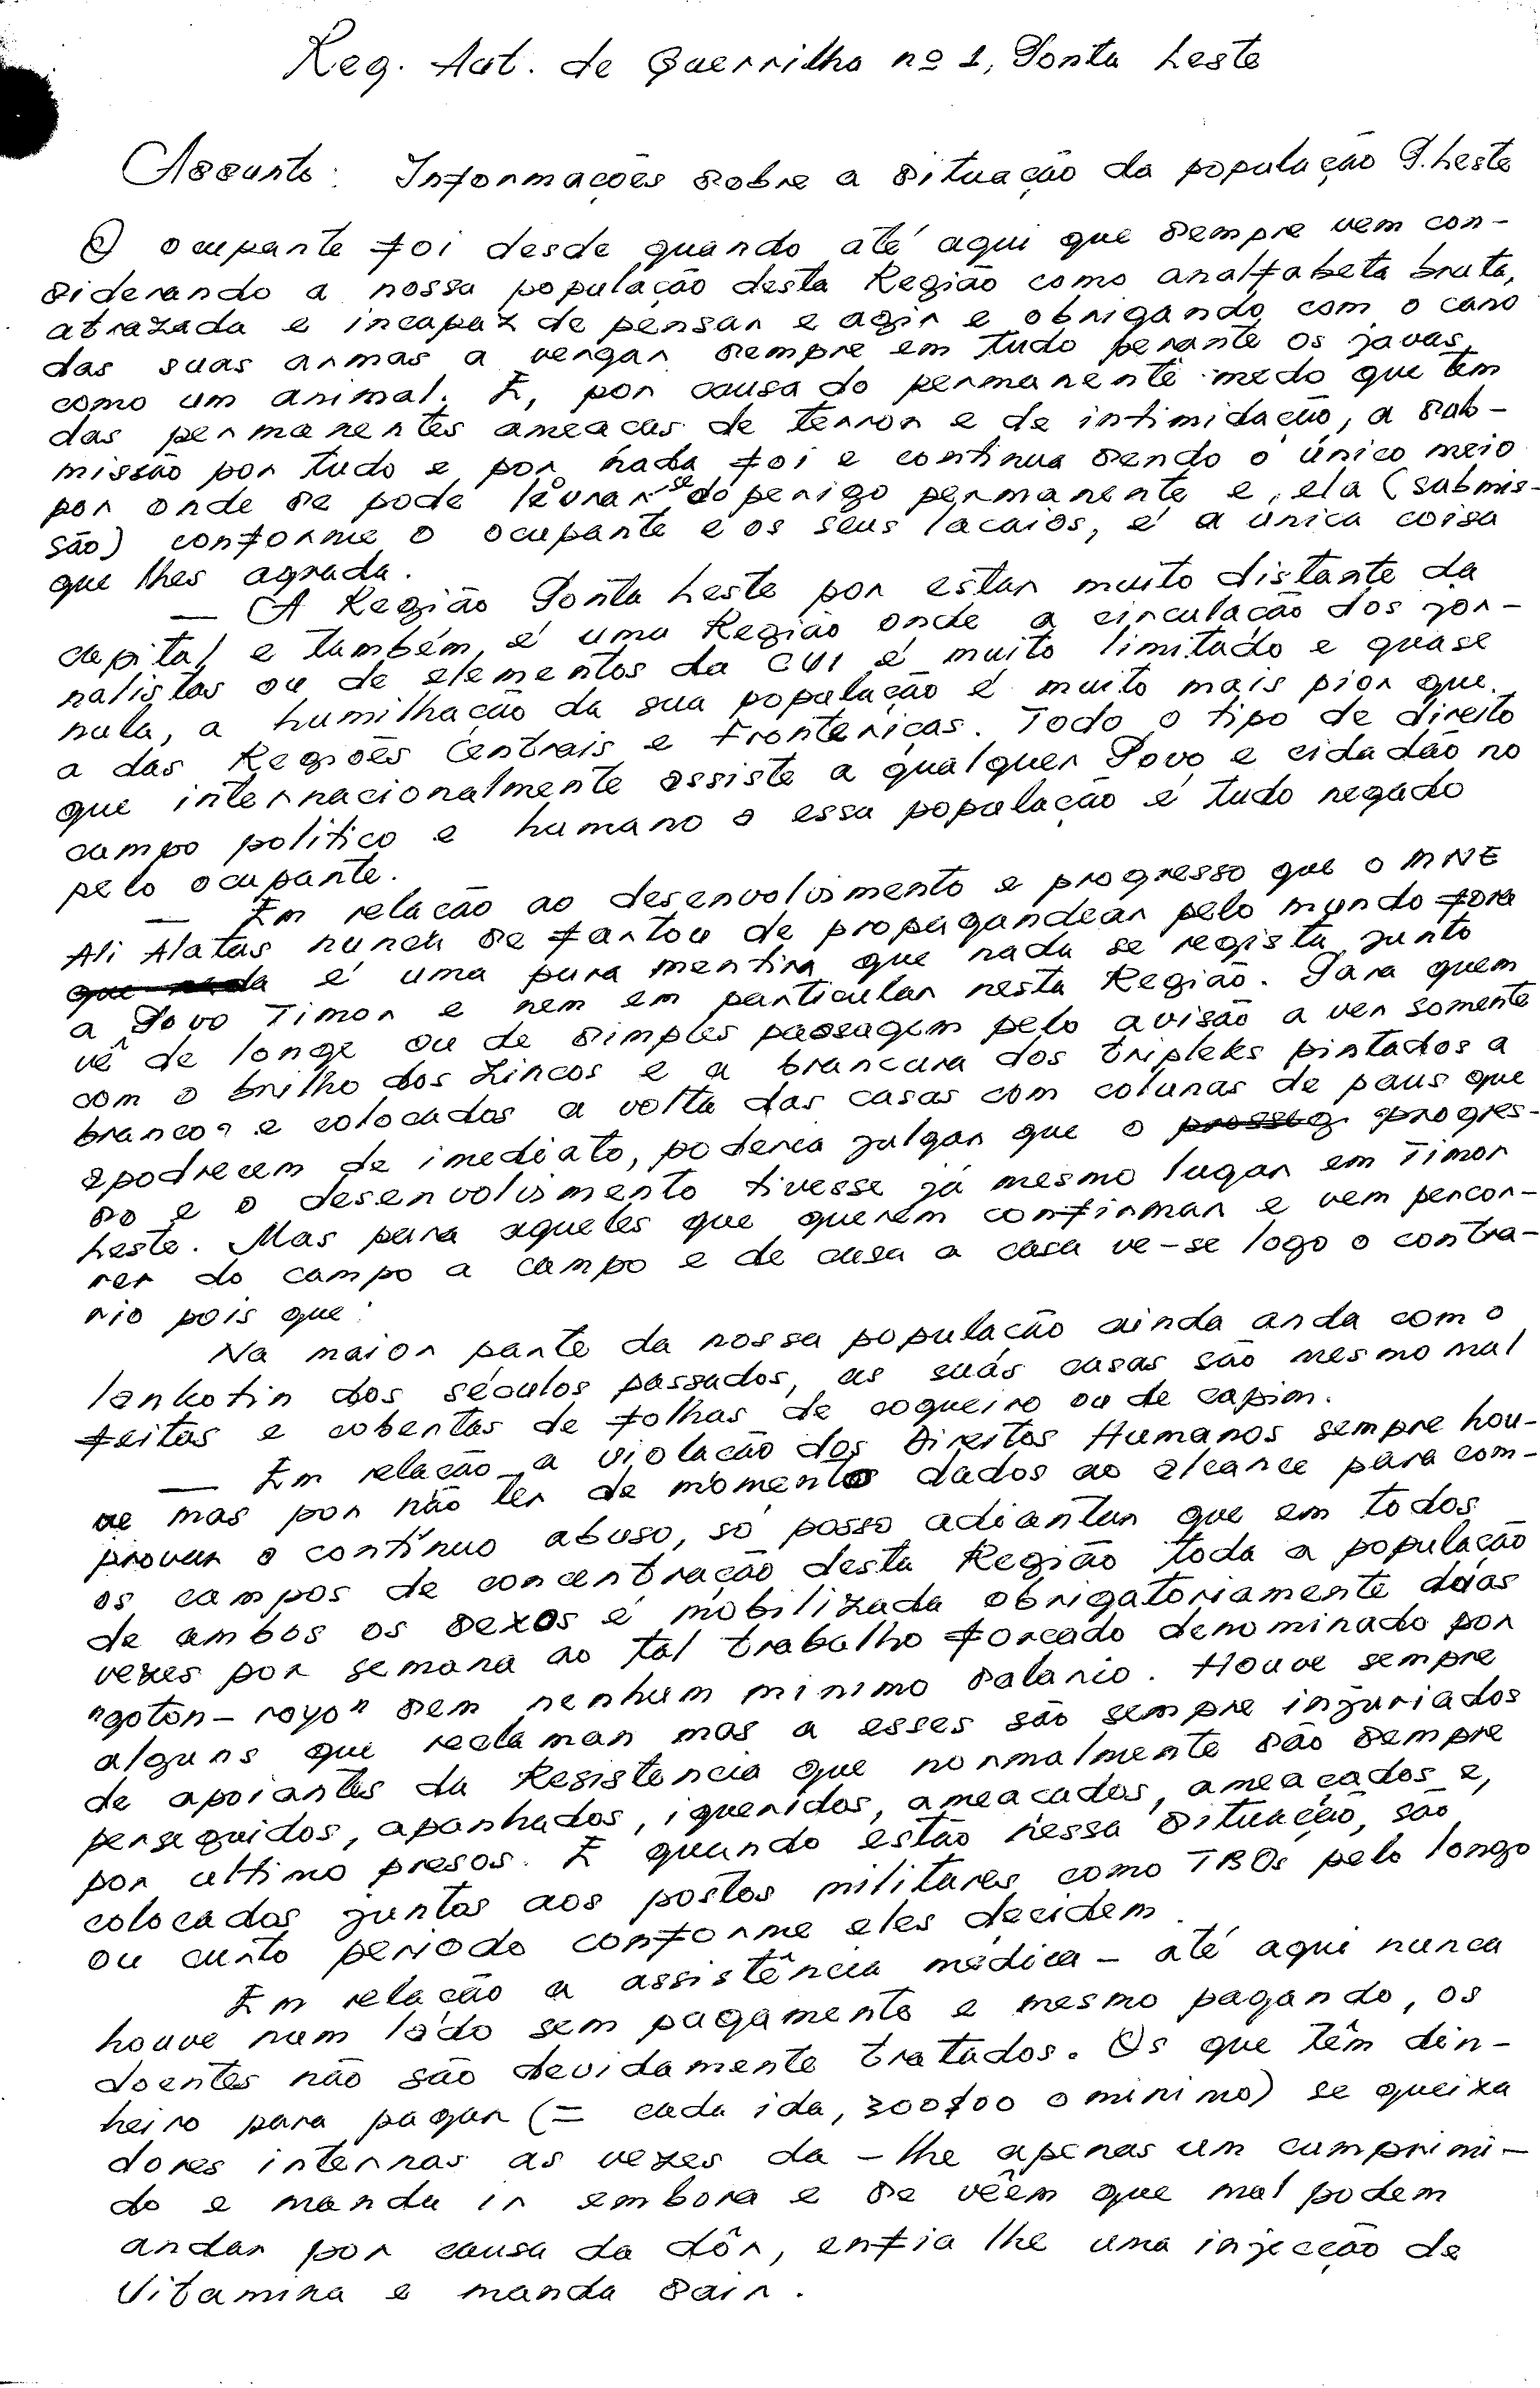 Reg. Aut. de Guerrilha nº 1, Ponta Leste
Assunto: Informações sobre a situação da população P. Leste
O ocupante foi desde quando até aqui que sempre vem con-
siderando a nossa população desta Região como analfabeta bruta,
atrazada e incapaz de pensar e agir e obrigando com o cano
das suas armas a vergar sempre em tudo perante os javas,
como um animal. E, por causa do permanente medo que têm
das permanentes ameacas de terror e de intimidação, a sub-
missão por tudo e por nada foi e continua sendo o único meio
por onde se pode levrar se do perigo permanente e, ela (submis-
são) conforme o ocupante e os seus lacaios, é a única coisa
que lhes agrada.
— A Região Ponta Leste por estar muito distante da
capital e também é uma Região onde a circulação dos jor-
nalistas ou de elementos da CVI é muito limitado e quase
nula, a humilhação da sua população é muito mais pior que
a das Regiões Centrais e Fronteriças. Todo o tipo de direito
que internacionalmente assiste a qualquer Povo e cidadão no
campo político e humano a essa população é tudo negado
pelo ocupante.
— Em relacão ao desenvolvimento e progresso que o MNE
Ali Alatas nunca se fartou de propagandear pelo mundo fora
que nada é uma pura mentira que nada se regista junto
a Povo Timor e nem em particular nesta Região. Para quem
vê de longe ou de simples passagem pelo avisão a ver somente
com o brilho dos zincos e a brancura dos tripleks pintados a
branco e colocados a volta das casas com colunas de paus que
apodrecem de imediato, poderia julgar que o prosseg progres-
so e o desenvolvimento tivesse já mesmo lugar em Timor
Leste. Mas para aqueles que querem confirmar e vem percor-
rer do campo a campo e de casa a casa ve-se logo o contra-
rio pois que:
Na maior parte da nossa população ainda anda com o
lankotin dos séculos passados, as suas casas são mesmo mal
feitas e cobertas de folhas de coqueiro ou de capim.
— Em relacão a violacão dos Direitos Humanos sempre hou-
ve mas por não ter de momento dados ao alcance para com-
provar o contínuo abuso, só posso adiantar que em todos
os campos de concentração desta Região toda a população
de ambos os sexos é mobilizada obrigatoriamente duas
vezes por semana ao tal trabalho forcado denominado por
"goton-royo" sem nenhum minimo salario. Houve sempre
alguns que reclaman mas a esses são sempre injuriados
de apoiantes da Resistencia que normalmente são sempre
perseguidos, apanhados, iqueridos, ameacados, ameaçados e,
por ultimo presos. E quando estão nessa situação, são
colocados juntos aos postos militares como TBOs pelo longo
ou curto periodo conforme eles decidem.
Em relação a assistência médica - até aqui nunca
houve num lado sem pagamento e mesmo pagando, os
doentes não são devidamente tratados. Os que têm din-
heiro para pagar (= cada ida, 300$00 o minimo) se queixa
dores internas as vezes da-lhe apenas um cumprimi-
do e manda ir embora e se vêem que mal podem
andar por causa da dôr, enfia lhe uma injecção de
Vitamina e manda sair.